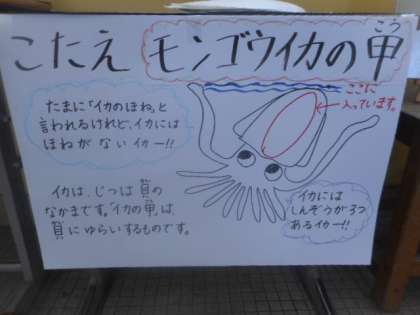 こたえ モンゴウイカの甲
こう
ここに
入っています。
たまに「イカのほね」と
言われるけれど、イカには
ほねがないイカー!!
イカは、じつは貝の
なかまです。「イカの甲」は、
貝にゆらいするものです。
イカには
しんぞうが3つ
あるイカー!!